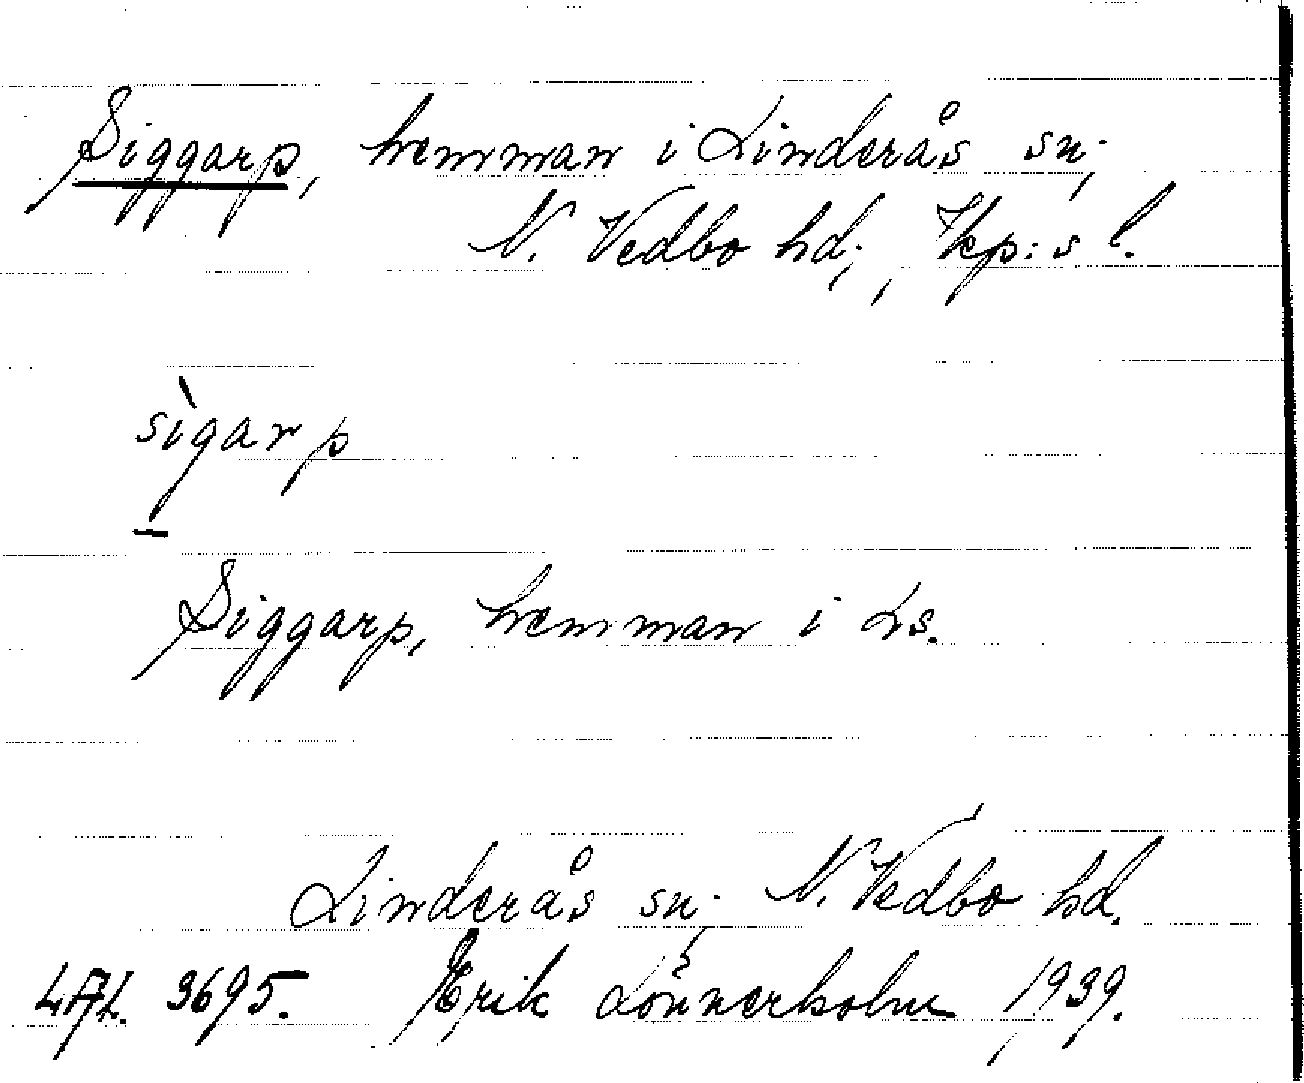 Siggarp, hemman i Linderås sn;
N. Vedbo hd;, Jkp:s l.
sìgarp
Siggarp, hemman i Ls.
Linderås sn; N. Vedbo hd.
LAL. 3695. Erik Lönnerholm 1939.